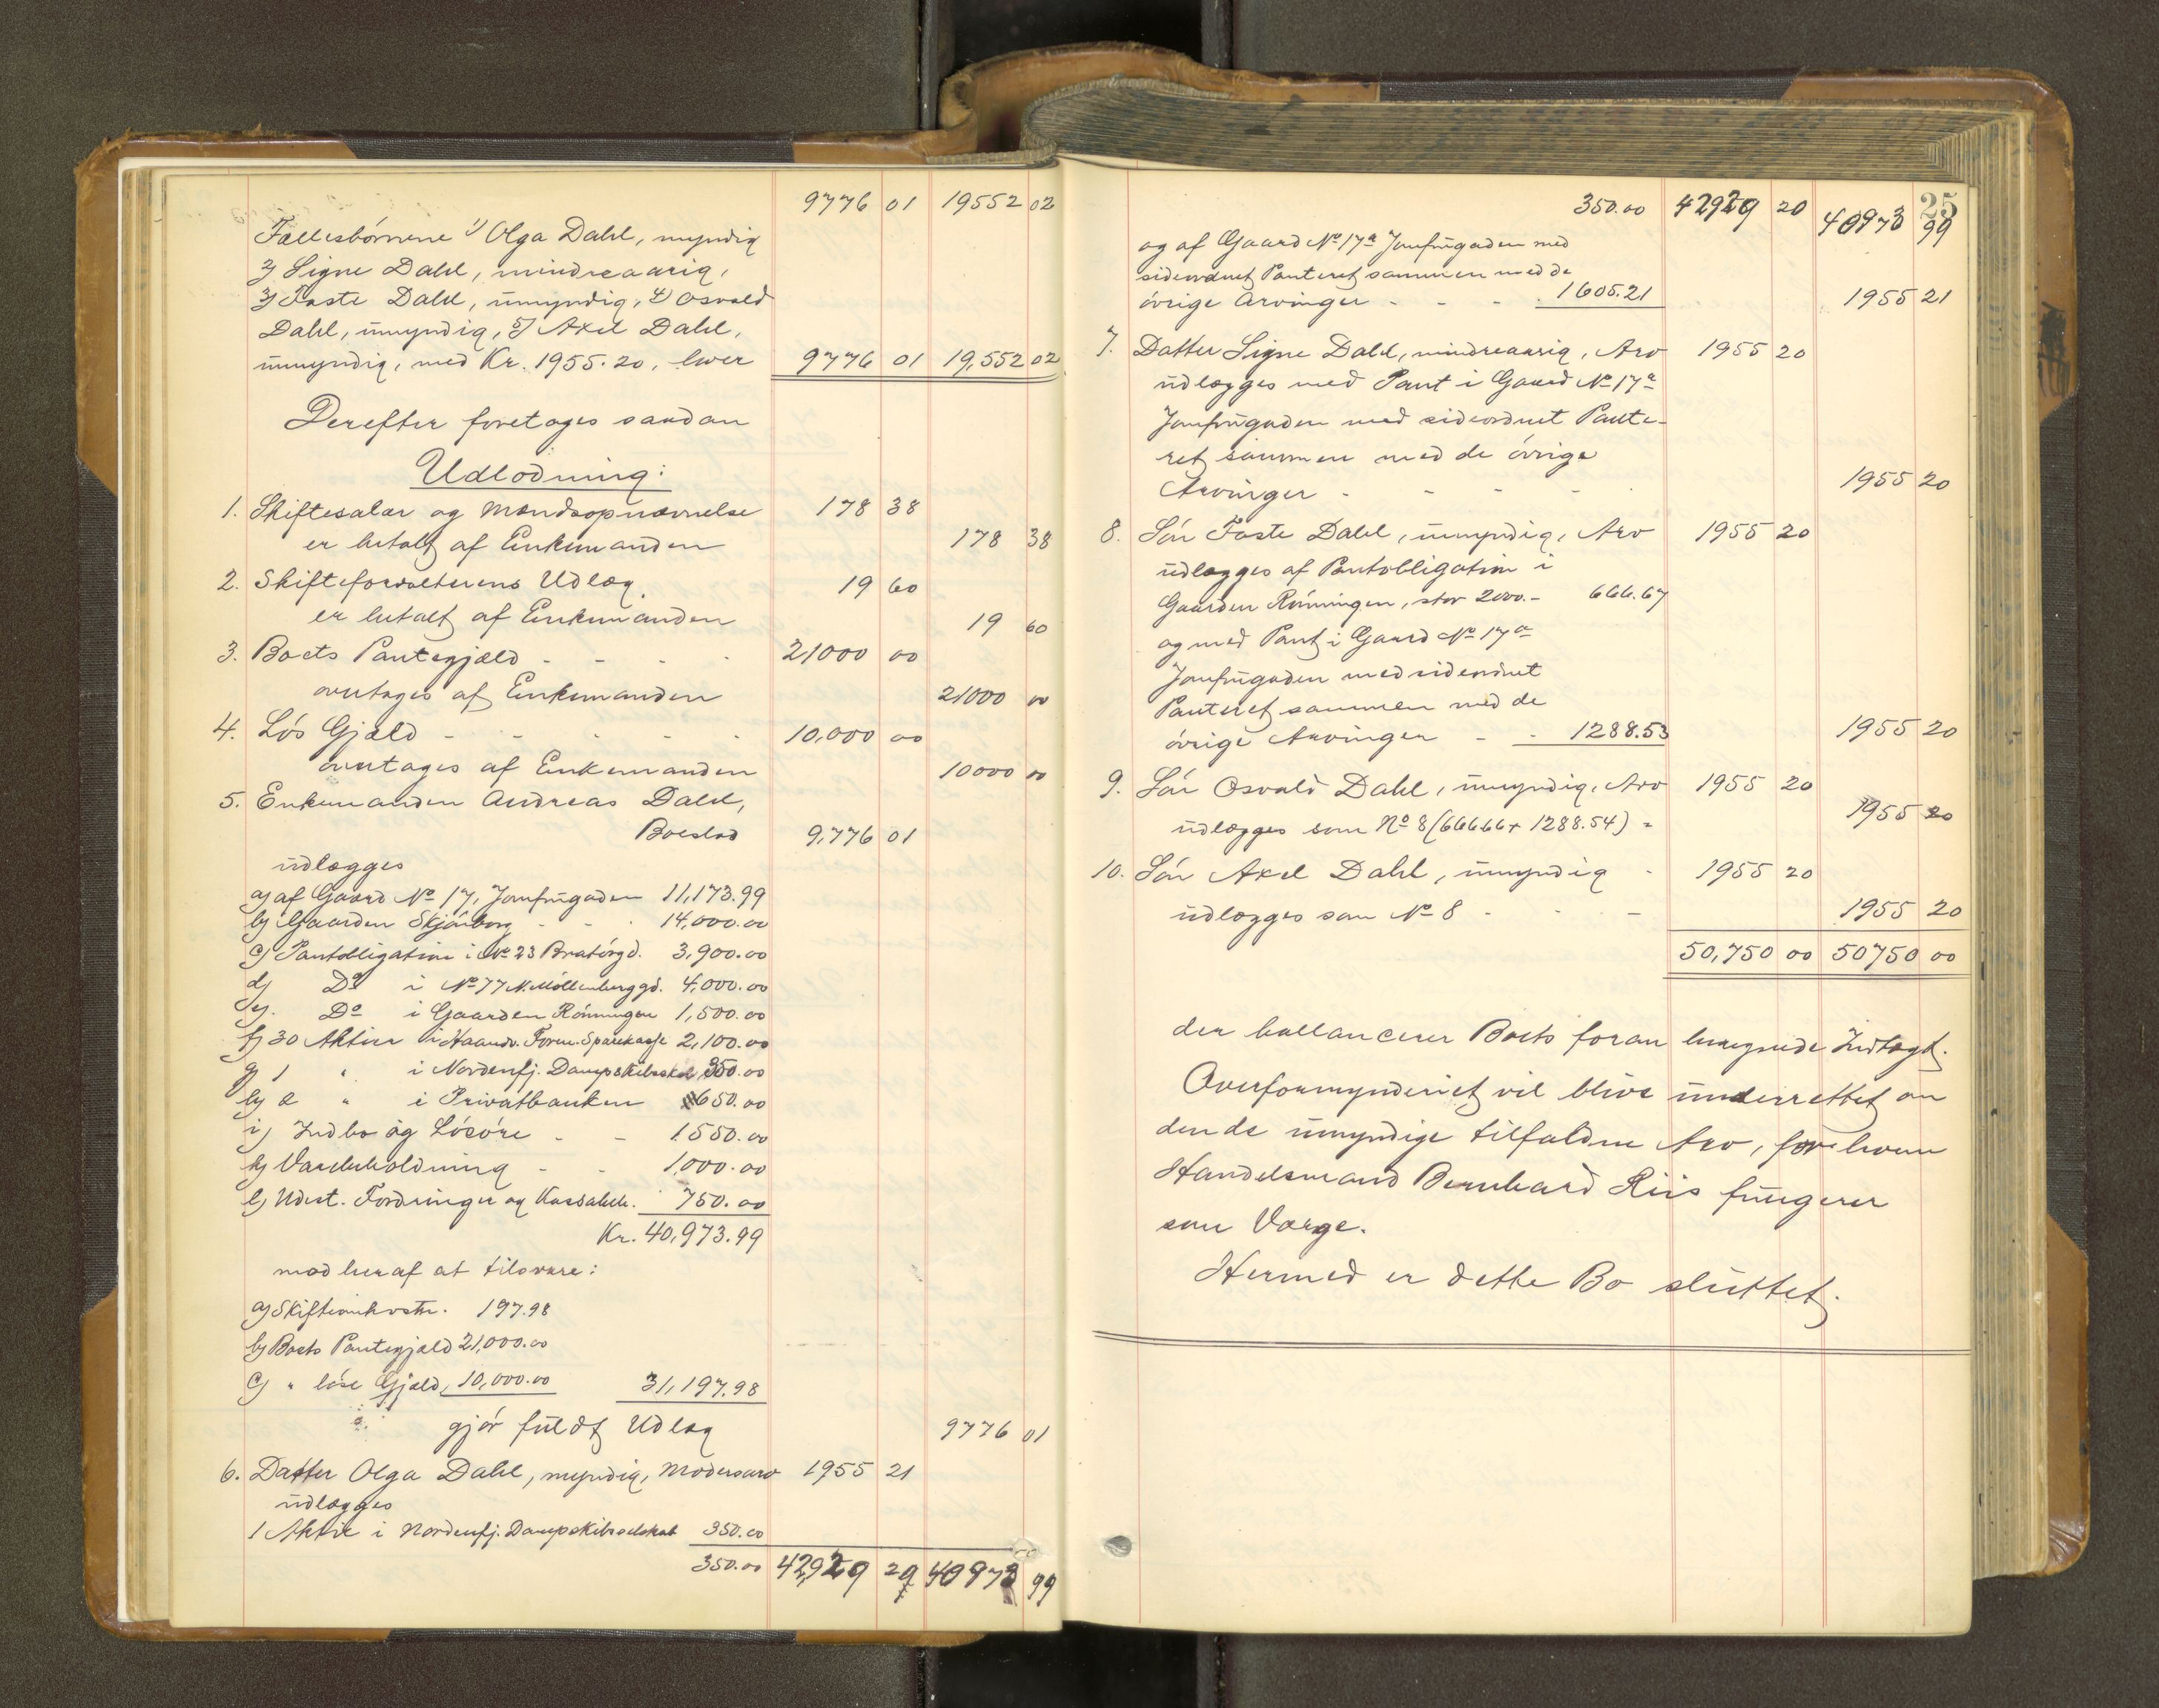 9776 01 19552 02
Fællesbørnene 1) Olga Dahl, myndig
2) Signe Dahl, mindreaarig,
3) Faste Dahl, umyndig, 4) Osvald
Dahl, umyndig, 5) Axel Dahl,
umyndig, med Kr. 1955.20, hver 9776 01 19,552 02
Derefter foretages saadan
Udlodning:
1. Skiftesalær og Mændsopnævnelse 178 38
er betalt af Enkemanden 178 38
2. Skifteforvalterens Udlæg 19 60
er betalt af Enkemanden 19 60
3. Boets Pantegjæld - - - - 21000 00
overtages af Enkemanden 21000 00
4. Løs Gjæld - - - - - 10,000 00
overtages af Enkemanden 10000 00
5. Enkemanden Andreas Dahl,
Boeslod 9,776 01
udlægges
a) af Gaard No 17, Jomfrugaden 11,173.99
b) Gaarden Skjønberg - - - 14,000.00
c) Pantobligation i No 23 Bratørgd. 3,900.00
d) Do i No 77 N. Møllenberggd. 4,000.00
e). Do i Gaarden Rønningen 1,500.00
f) 30 Aktier i Haandv. Foren. Sparekasse 2,100.00
g) 1 " i Nordenfj. Dampskibsselsk. 350.00
h) 2 " i Privatbanken 650.00
i) Indbo og Løsøre - - 1550.00
k) Varebeholdning - - 1,000.00
l) Udest. Fordringer og Kassabeh. 750.00
Kr. 40,973.99
mod heraf at tilsvare:
a) Skifteomkostn. 197.98
b) Boets Pantegjæld 21,000.00
c) " løse Gjæld, 10,000.00 31,197.98
gjør fuldt Udlæg 9776 01
6. Datter Olga Dahl, myndig, Modersarv 1955 21
udlægges
1 Aktie i Nordenfj. Dampskibsselskab 350.00
350.00 42,929 20 40973 99
25
350.00 42929 20 40973 99
og af Gaard No 17a Jomfrugaden med
sideordnet Panteret sammen med de
øvrige Arvinger - - - 1605.21 1955 21
7. Datter Signe Dahl, mindreaarig, Arv 1955 20
udlægges med Pant i Gaard No 17a
Jomfrugaden med sideordnet Pante-
ret sammen med de øvrige
Arvinger - - - - 1955 20
8. Søn Faste Dahl, umyndig, Arv 1955 20
udlægges af Pantobligation i
Gaarden Rønningen, stor 2000.- 666.67
og med Pant i Gaard No 17a
Jomfrugaden med sideordnet
Panteret sammen med de
øvrige Arvinger - - 1288.53 1955 20
9. Søn Osvald Dahl, umyndig, Arv 1955 20
udlægges som No 8 (666.66 + 1288.54) = 1955 20
10. Søn Axel Dahl, umyndig - 1955 20
udlægges som No 8 - - - 1955 20
50,750 00 50750 00
der ballancerer Boets foran beregnede Indtægt.
Overformynderiet vil blive underrettet om
den de umyndige tilfaldne Arv, for hvem
Handelsmand Bernhard Riis fungerer
som Værge.
Hermed er dette Bo sluttet.